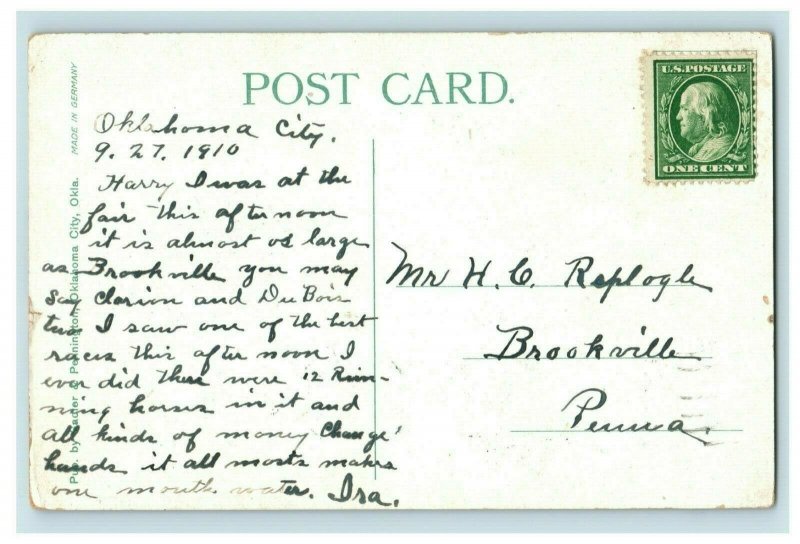 POST CARD.
MADE IN GERMANY
Pub. by Sadler & Pennington, Oklahoma City, Okla.
U.S.POSTAGE
ONE CENT
Oklahoma City.
9. 27. 1910
Harry I was at the
fair this after noon
it is almost as large
as Brookville you may
say Clarion and DuBois
two I saw one of the best
races this after noon I
ever did there were 12 Run-
ning horses in it and
all kinds of money Change
hands it all mosts makes
one mouth water. Ira.
Mr H. C. Replogle
Brookville
Penna.